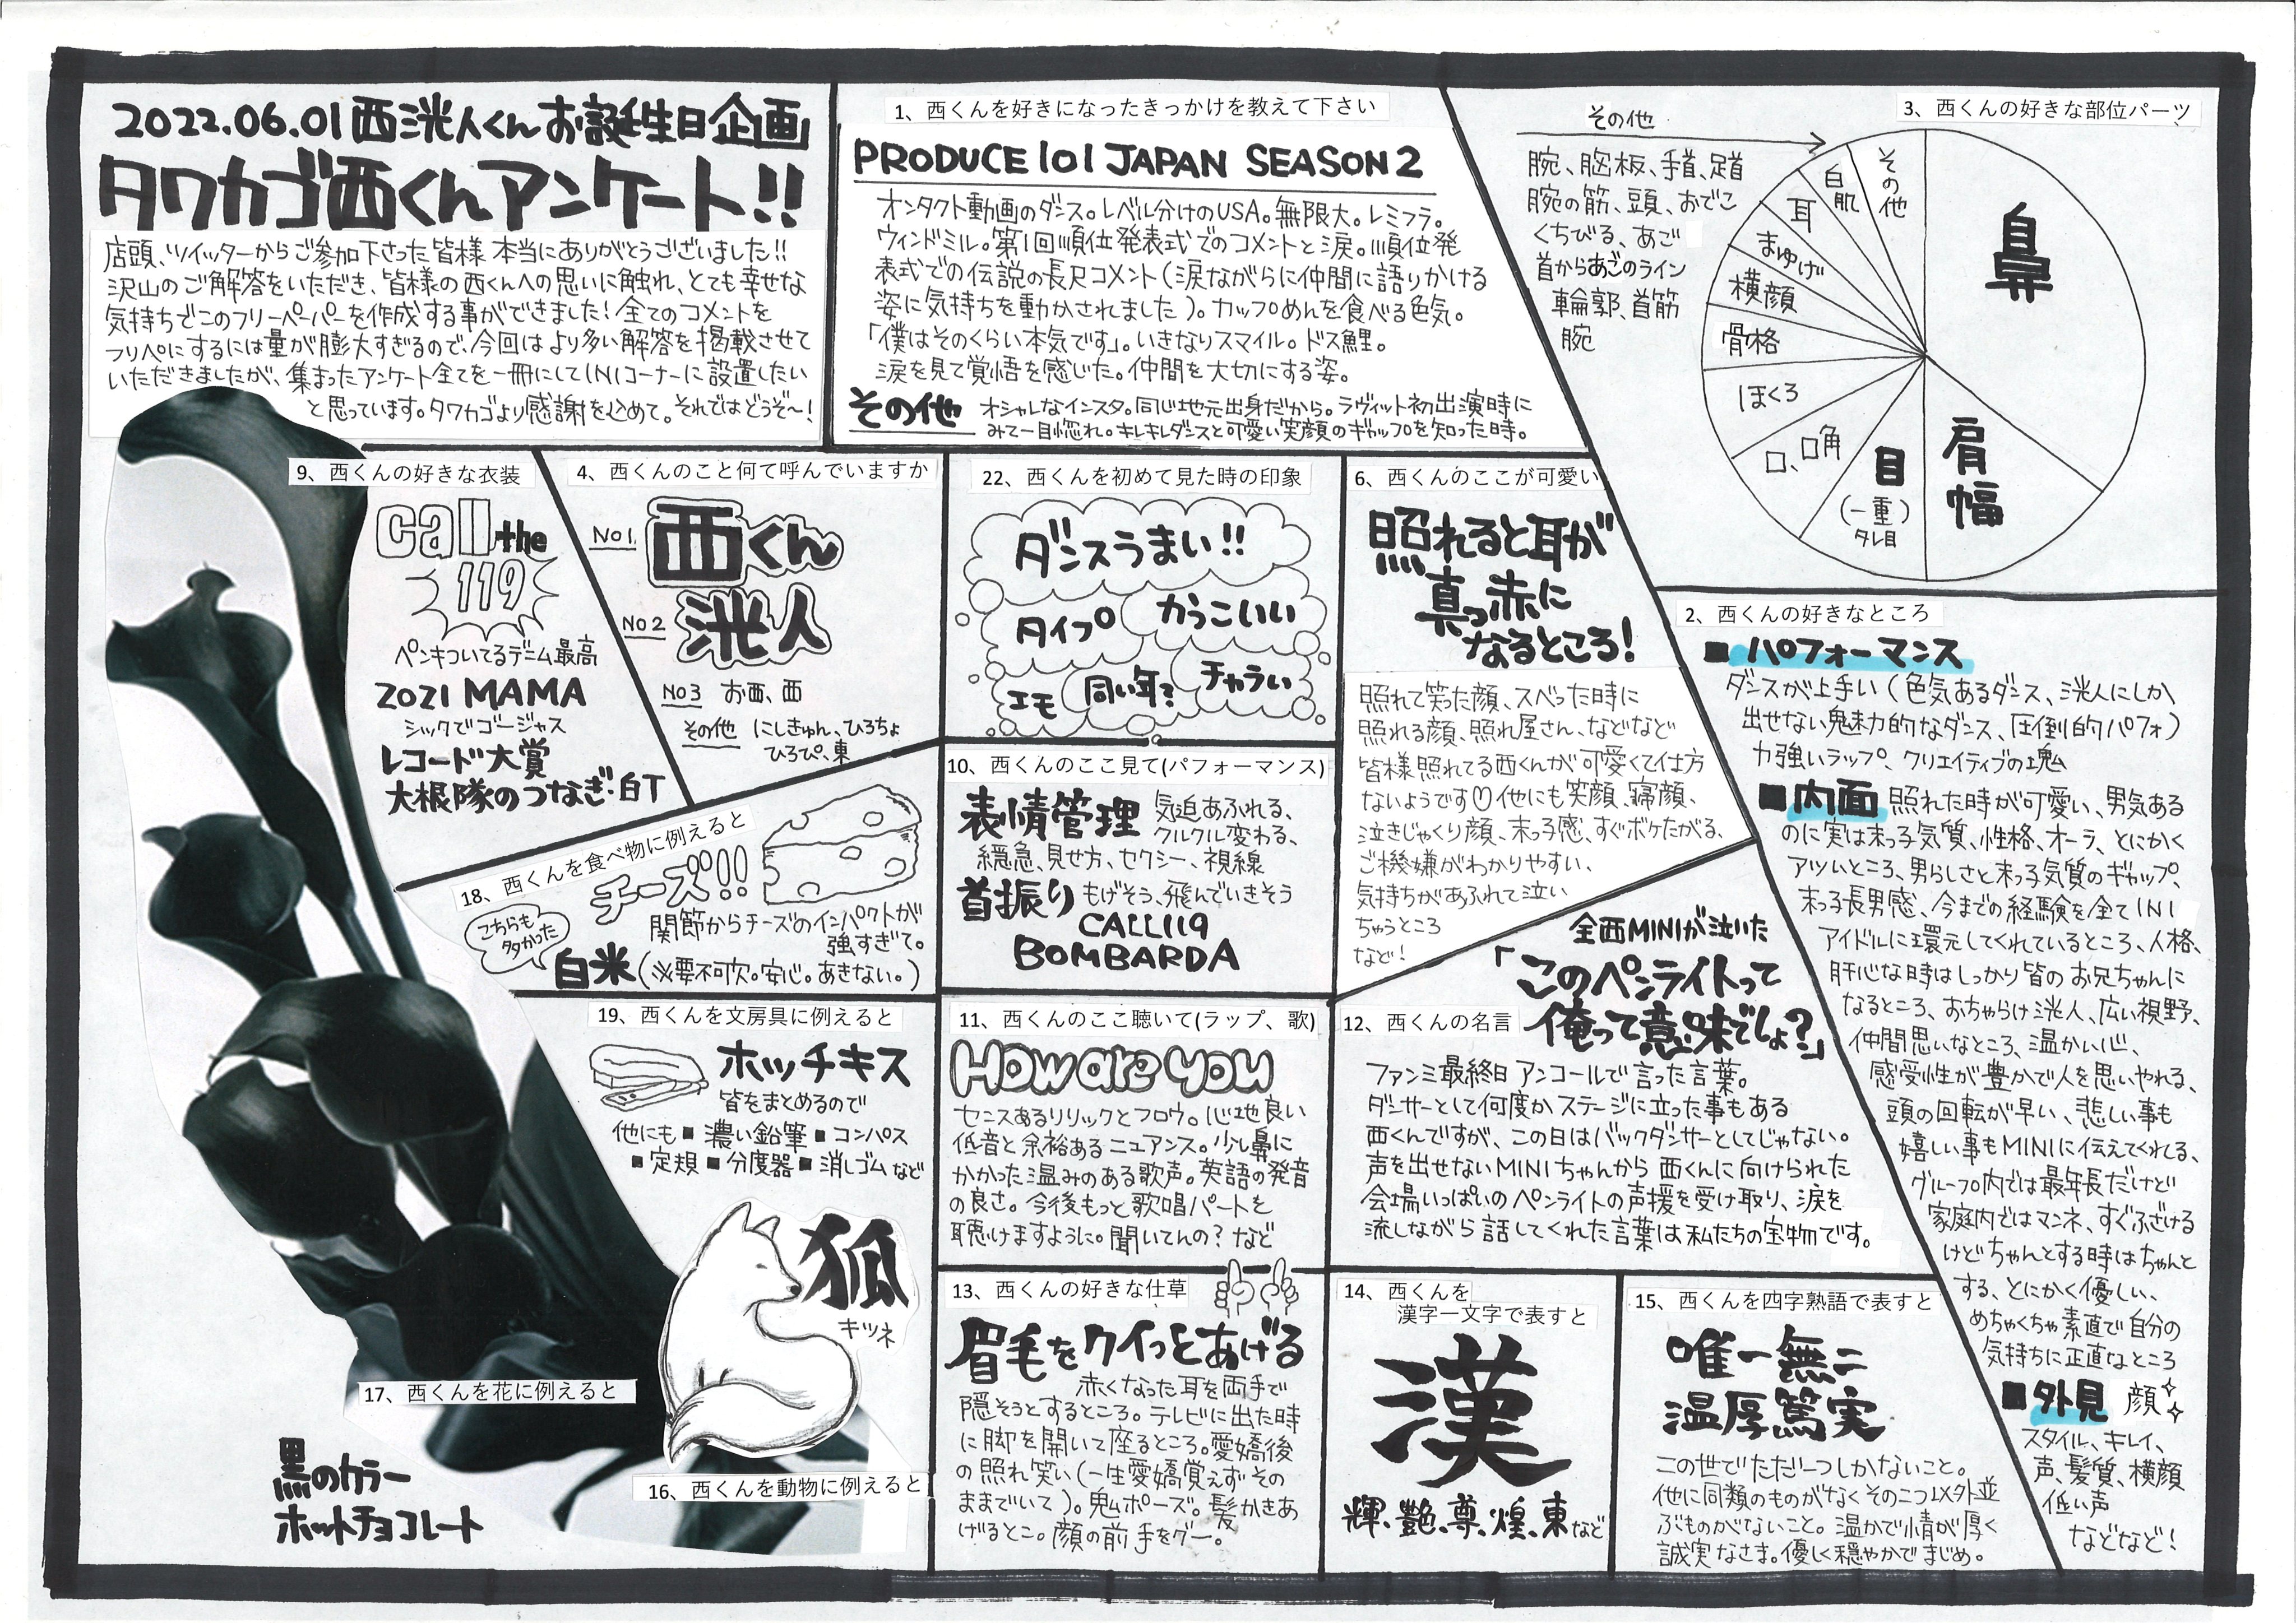 2022.06.01西洸人くんお誕生日企画
タワカゴ西くんアンケート!!
店頭、ツイッターからご参加下さった皆様 本当にありがとうございました!!
沢山のご解答をいただき、皆様の西くんへの思いに触れ、とても幸せな
気持ちでこのフリーペーパーを作成する事ができました!全てのコメントを
フリペにするには量が膨大すぎるので、今回はより多い解答を掲載させて
いただきましたが、集まったアンケート全てを一冊にしてINIコーナーに設置したい
と思っています。タワカゴより感謝を込めて。それではどうぞ〜!
1、西くんを好きになったきっかけを教えて下さい
PRODUCE 101 JAPAN SEASON2
オンタクト動画のダンス。レベル分けのUSA。無限大。レミフラ。
ウィンドミル。第1回順位発表式でのコメントと涙。順位発
表式での伝説の長尺コメント(涙ながらに仲間に語りかける
姿に気持ちを動かされました)。カップめんを食べる色気。
「僕はそのくらい本気です」。いきなりスマイル。ドス鯉。
涙を見て覚悟を感じた。仲間を大切にする姿。
その他 オシャレなインスタ。同じ地元出身だから。ラヴィット初出演時に
みて一目惚れ。キレキレダンスと可愛い笑顔のギャップを知った時。
3、西くんの好きな部位パーツ
その他
腕、胸板、手首、足首
腕の筋、頭、おでこ
くちびる、あご
首からあごのライン
輪郭、首筋
腕
鼻
肩幅
目
(一重)
タレ目
口、口角
ほくろ
骨格
横顔
まゆげ
耳
白肌
その他
9、西くんの好きな衣装
Call the
119
ペンキついてるデニム最高
2021 MAMA
シックでゴージャス
レコード大賞
大根隊のつなぎ・白T
4、西くんのこと何て呼んでいますか
No1. 西くん
No2 洸人
No3 お西、西
その他 にしきゅん、ひろちょ
ひろぴ、東
22、西くんを初めて見た時の印象
ダンスうまい!!
タイプ
かっこいい
エモ
同い年?
チャラい
6、西くんのここが可愛い
照れると耳が
真っ赤に
なるところ!
照れて笑た顔、スベった時に
照れる顔、照れ屋さん、などなど
皆様照れてる西くんが可愛くて仕方
ないようです♡他にも笑顔、寝顔、
泣きじゃくり顔、末っ子感、すぐボケたがる、
ご機嫌がわかりやすい、
気持ちがあふれて泣い
ちゃうところ
など!
2、西くんの好きなところ
■パフォーマンス
ダンスが上手い(色気あるダンス、洸人にしか
出せない魅力的なダンス、圧倒的パフォ)
力強いラップ、クリエイティブの塊
■内面 照れた時が可愛い、男気ある
のに実は末っ子気質、性格、オーラ、とにかく
アツいところ、男らしさと末っ子気質のギャップ、
末っ子長男感、今までの経験を全てINI
アイドルに還元してくれているところ、人格、
肝心な時はしっかり皆のお兄ちゃんに
なるところ、おちゃらけ洸人、広い視野、
仲間思いなところ、温かい心、
感受性が豊かで人を思いやれる、
頭の回転が早い、悲しい事も
嬉しい事もMINIに伝えてくれる、
グループ内では最年長だけど
家庭内ではマンネ、すぐふざける
けどちゃんとする時はちゃんと
する、とにかく優しい、
めちゃくちゃ素直で自分の
気持ちに正直なところ
■外見 顔
スタイル、キレイ、
声、髪質、横顔
低い声
などなど!
10、西くんのここ見て(パフォーマンス)
表情管理 気迫あふれる、
クルクル変わる、
緩急、見せ方、セクシー、視線
首振り もげそう、飛んでいきそう
CALL119
BOMBARDA
18、西くんを食べ物に例えると
チーズ!!
関節からチーズのインパクトが
強すぎて。
こちらも
多かった
白米(必要不可欠。安心。あきない。)
19、西くんを文房具に例えると
ホッチキス
皆をまとめるので
他にも■濃い鉛筆■コンパス
■定規■分度器■消しゴムなど
11、西くんのここ聴いて(ラップ、歌)
How are you
センスあるリリックとフロウ。心地良い
低音と余裕あるニュアンス。少し鼻に
かかった温みのある歌声。英語の発音
の良さ。今後もっと歌唱パートを
聴けますように。聞いてんの?など
12、西くんの名言
全西MINIが泣いた
「このペンライトって
俺って意味でしょ?」
ファンミ最終日アンコールで言った言葉。
ダンサーとして何度かステージに立った事もある
西くんですが、この日はバックダンサーとしてじゃない。
声を出せないMINIちゃんから西くんに向けられた
会場いっぱいのペンライトの声援を受け取り、涙を
流しながら話してくれた言葉は私たちの宝物です。
13、西くんの好きな仕草
眉毛をクイっとあげる
赤くなった耳を両手で
隠そうとするところ。テレビに出た時
に脚を開いて座るところ。愛嬌後
の照れ笑い(一生愛嬌覚えずその
ままでいて)。鬼ポーズ。髪かきあ
げるとこ。顔の前手をグー。
14、西くんを
漢字一文字で表すと
漢
輝、艶、尊、煌、東など
15、西くんを四字熟語で表すと
唯一無二
温厚篤実
この世でただ一つしかないこと。
他に同類のものがなくその二つ以外並
ぶものがないこと。温かで情が厚く
誠実なさま。優しく穏やかでまじめ。
狐
キツネ
16、西くんを動物に例えると
17、西くんを花に例えると
黒のカラー
ホットチョコレート